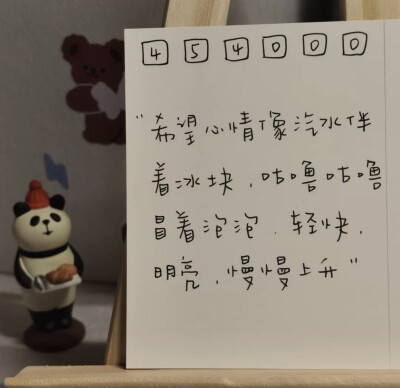 454000
"希望心情像汽水伴
着冰块，咕噜咕噜
冒着泡泡，轻快，
明亮，慢慢上升"